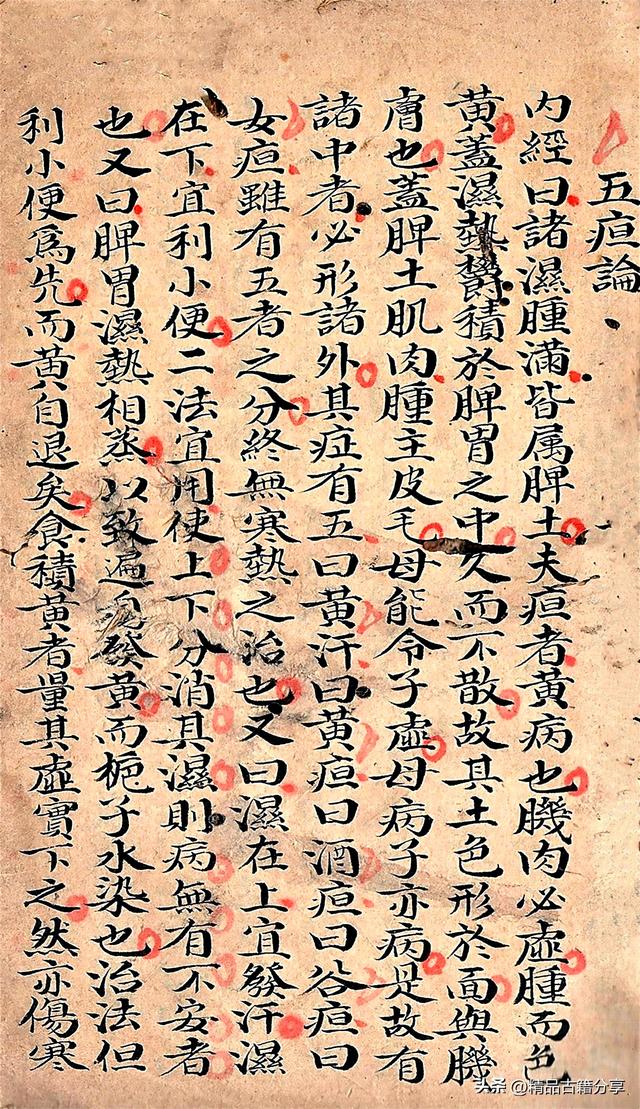 五疸論
内經曰諸濕腫滿皆属脾土夫疸者黄病也膿肉必虛腫而色
黄蓋濕熱欝積於脾胃之中久而不散故其土色形於面與膿
膚也蓋脾土肌肉腫主皮毛母能令子虛母病子亦病是故有
諸中者必形諸外其症有五曰黄汗曰黄疸曰酒疸曰谷疸曰
女疸雖有五者之分終無寒熱之治也又曰濕在上宜發汗濕
在下宜利小便二法宜用使上下分消其濕則病無有不安者
也又曰脾胃濕熱相蒸以致遍身發黄而梔子水染也治法但
利小便爲先而黄自退矣食積黄者量其虛實下之然亦傷寒
头条 @精品古籍分享